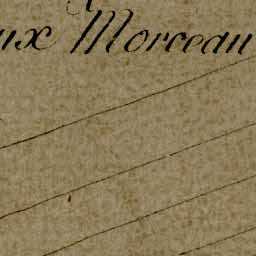 ux Morceau